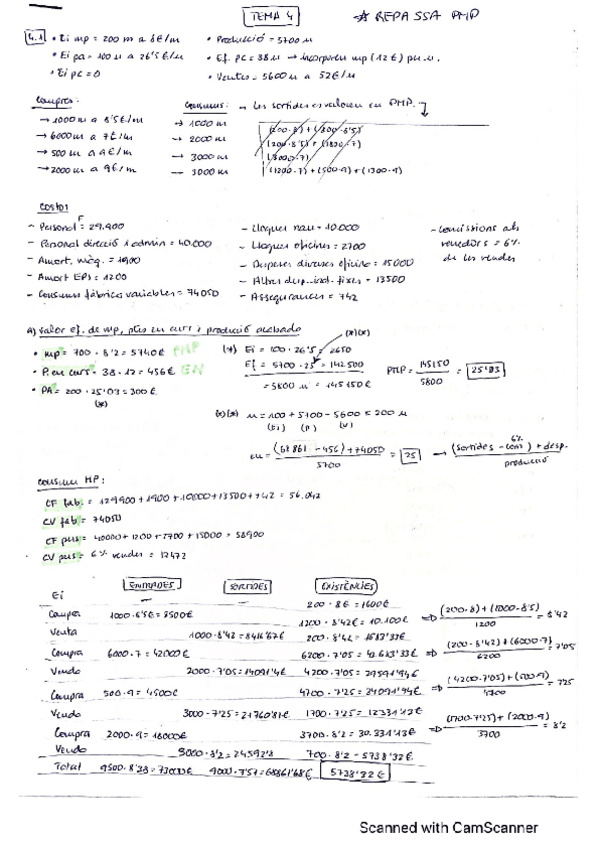 TEMA 4 ☆ REPASSA PMP
4.1 • Ei mp = 200 m a 8€/m • Producció = 5700 u
• Ei pa = 100 u a 26'5 €/u • Ef. PC = 38 u → incorporen mp (12 €) per u.
• Ei PC = 0 • Ventes = 5600 u a 52€/u
Compres: Consums: - Les sortides es valoren en PMP.
→ 1000 m a 8'5€/m → 1000 m (200·8) + (800·8'5)
→ 6000 m a 7€/m → 2000 m (200·8'5) + (1800·7)
→ 500 m a 9€/m → 3000 m (3000·7)
→ 2000 m a 9€/m → 3000 m (1200·7) + (500·9) + (1300·9)
Costos
- Personal F = 29.900 - Lloguer nau = 10.000 - Comissions als
- Personal direcció i admin = 40.000 - Lloguer oficines = 2700 venedors = 6%
- Amort. màq. = 1900 - Despeses diverses oficina = 15000 de les vendes
- Amort EPI = 1200 - Altres desp. ind. fixes = 13500
- Consums fàbrica variables = 74050 - Assegurances = 742
A) Valor ef. de mp, ptes en curs i producció acabada
• mp = 700 · 8'2 = 5740€ PMP (*) Ei = 100 · 26'5 = 2650 (*)(*)
• P. en curs = 38 · 12 = 456€ Ef = 5700 · 25 = 142500 PMP = 145150 / 5800 = 25'03
• PA = 200 · 25'03 = 300€ = 5800 u = 145150€
(*)
(*)(*) u = 100 + 5700 - 5600 = 200 u
(Ei) (P) (V)
cu = (68861 - 456) + 74050 / 5700 = 25 → (sortides - ) + desp. / producció
Consum MP:
CF fab. = 129900 + 1900 + 10000 + 13500 + 742 = 56.042
CV fab = 74050
CF pers = 40000 + 1200 + 2700 + 15000 = 58900
CV pers = 6% vendes = 17472
ENTRADES SORTIDES EXISTÈNCIES
Ei — — 200 · 8€ = 1600€
Compra 1000 · 8'5€ = 8500€ 1200 · 8'42€ = 10.100€ ⇒ (200·8) + (1000·8'5) / 1200 = 8'42
Venta 1000 · 8'42 = 8416'67€ 200 · 8'42 = 1683'33€
Compra 6000 · 7 = 42000€ 6200 · 7'05 = 43.683'33€ ⇒ (200·8'42) + (6000·7) / 6200 = 7'05
Vendo 2000 · 7'05 = 14091'4€ 4200 · 7'05 = 29591'94€
Compra 500 · 9 = 4500€ 4700 · 7'25 = 34091'94€ ⇒ (4200·7'05) + (500·9) / 4700 = 7'25
Vendo 3000 · 7'25 = 21760'81€ 1700 · 7'25 = 12331'13€
Compra 2000 · 9 = 18000€ 3700 · 8'2 = 30.331'13€ ⇒ (1700·7'25) + (2000·9) / 3700 = 8'2
Vendo 3000 · 8'2 = 24592'8 700 · 8'2 = 5738'32€
Total 9500 · = 73000€ 9000 · = 68861'68€ 5738'32€
Scanned with CamScanner